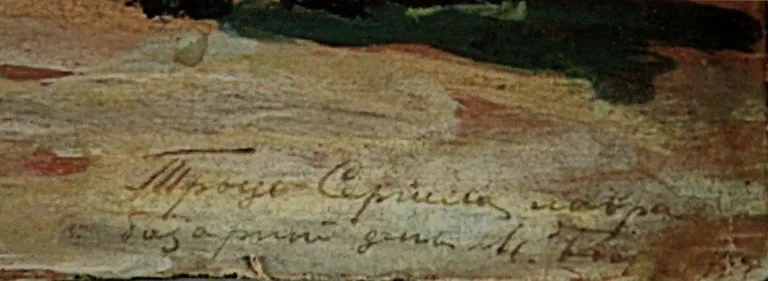 Троце Сергиева лавра
базарный день М.